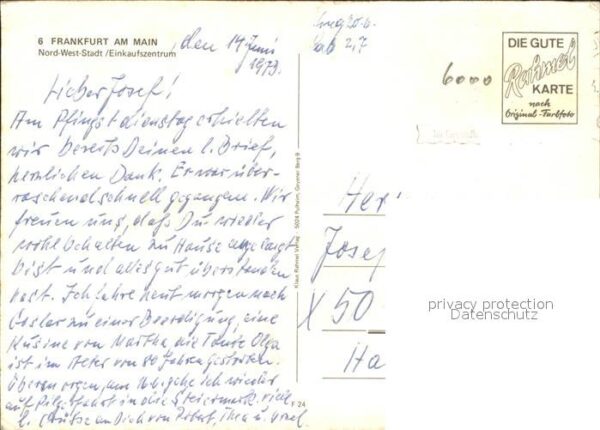 6 FRANKFURT AM MAIN
Nord-West-Stadt /Einkaufszentrum
den 14. Juni
1973.
Lieber Josef!
Am Pfingstdienstag erhielten
wir bereits Deinen l. Brief,
herzlichen Dank. Er war über-
raschend schnell gegangen. Wir
freuen uns, daß Du wieder
wohlbehalten zu Hause angelangt
bist und alles gut überstanden
hast. Ich fahre heut morgen nach
Goslar zu einer Beerdigung, eine
Kusine von Martha die Tante Olga
ist im Alter von 80 Jahren gestorben.
Übermorgen, am 16. gehe ich wieder
auf Pilgerfahrt in die Steiermark. Viele
l. Grüße an Dich von u.
Klaus Rahmel Verlag · 5024 Pulheim,
F 24
2,7
6000
DIE GUTE
Rahmel
KARTE
nach
Original-Farbfoto
Her
Josef
X 50
Ha
privacy protection
Datenschutz